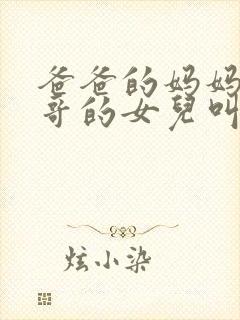 爸爸的妈妈
哥的女兒叫
炫小染